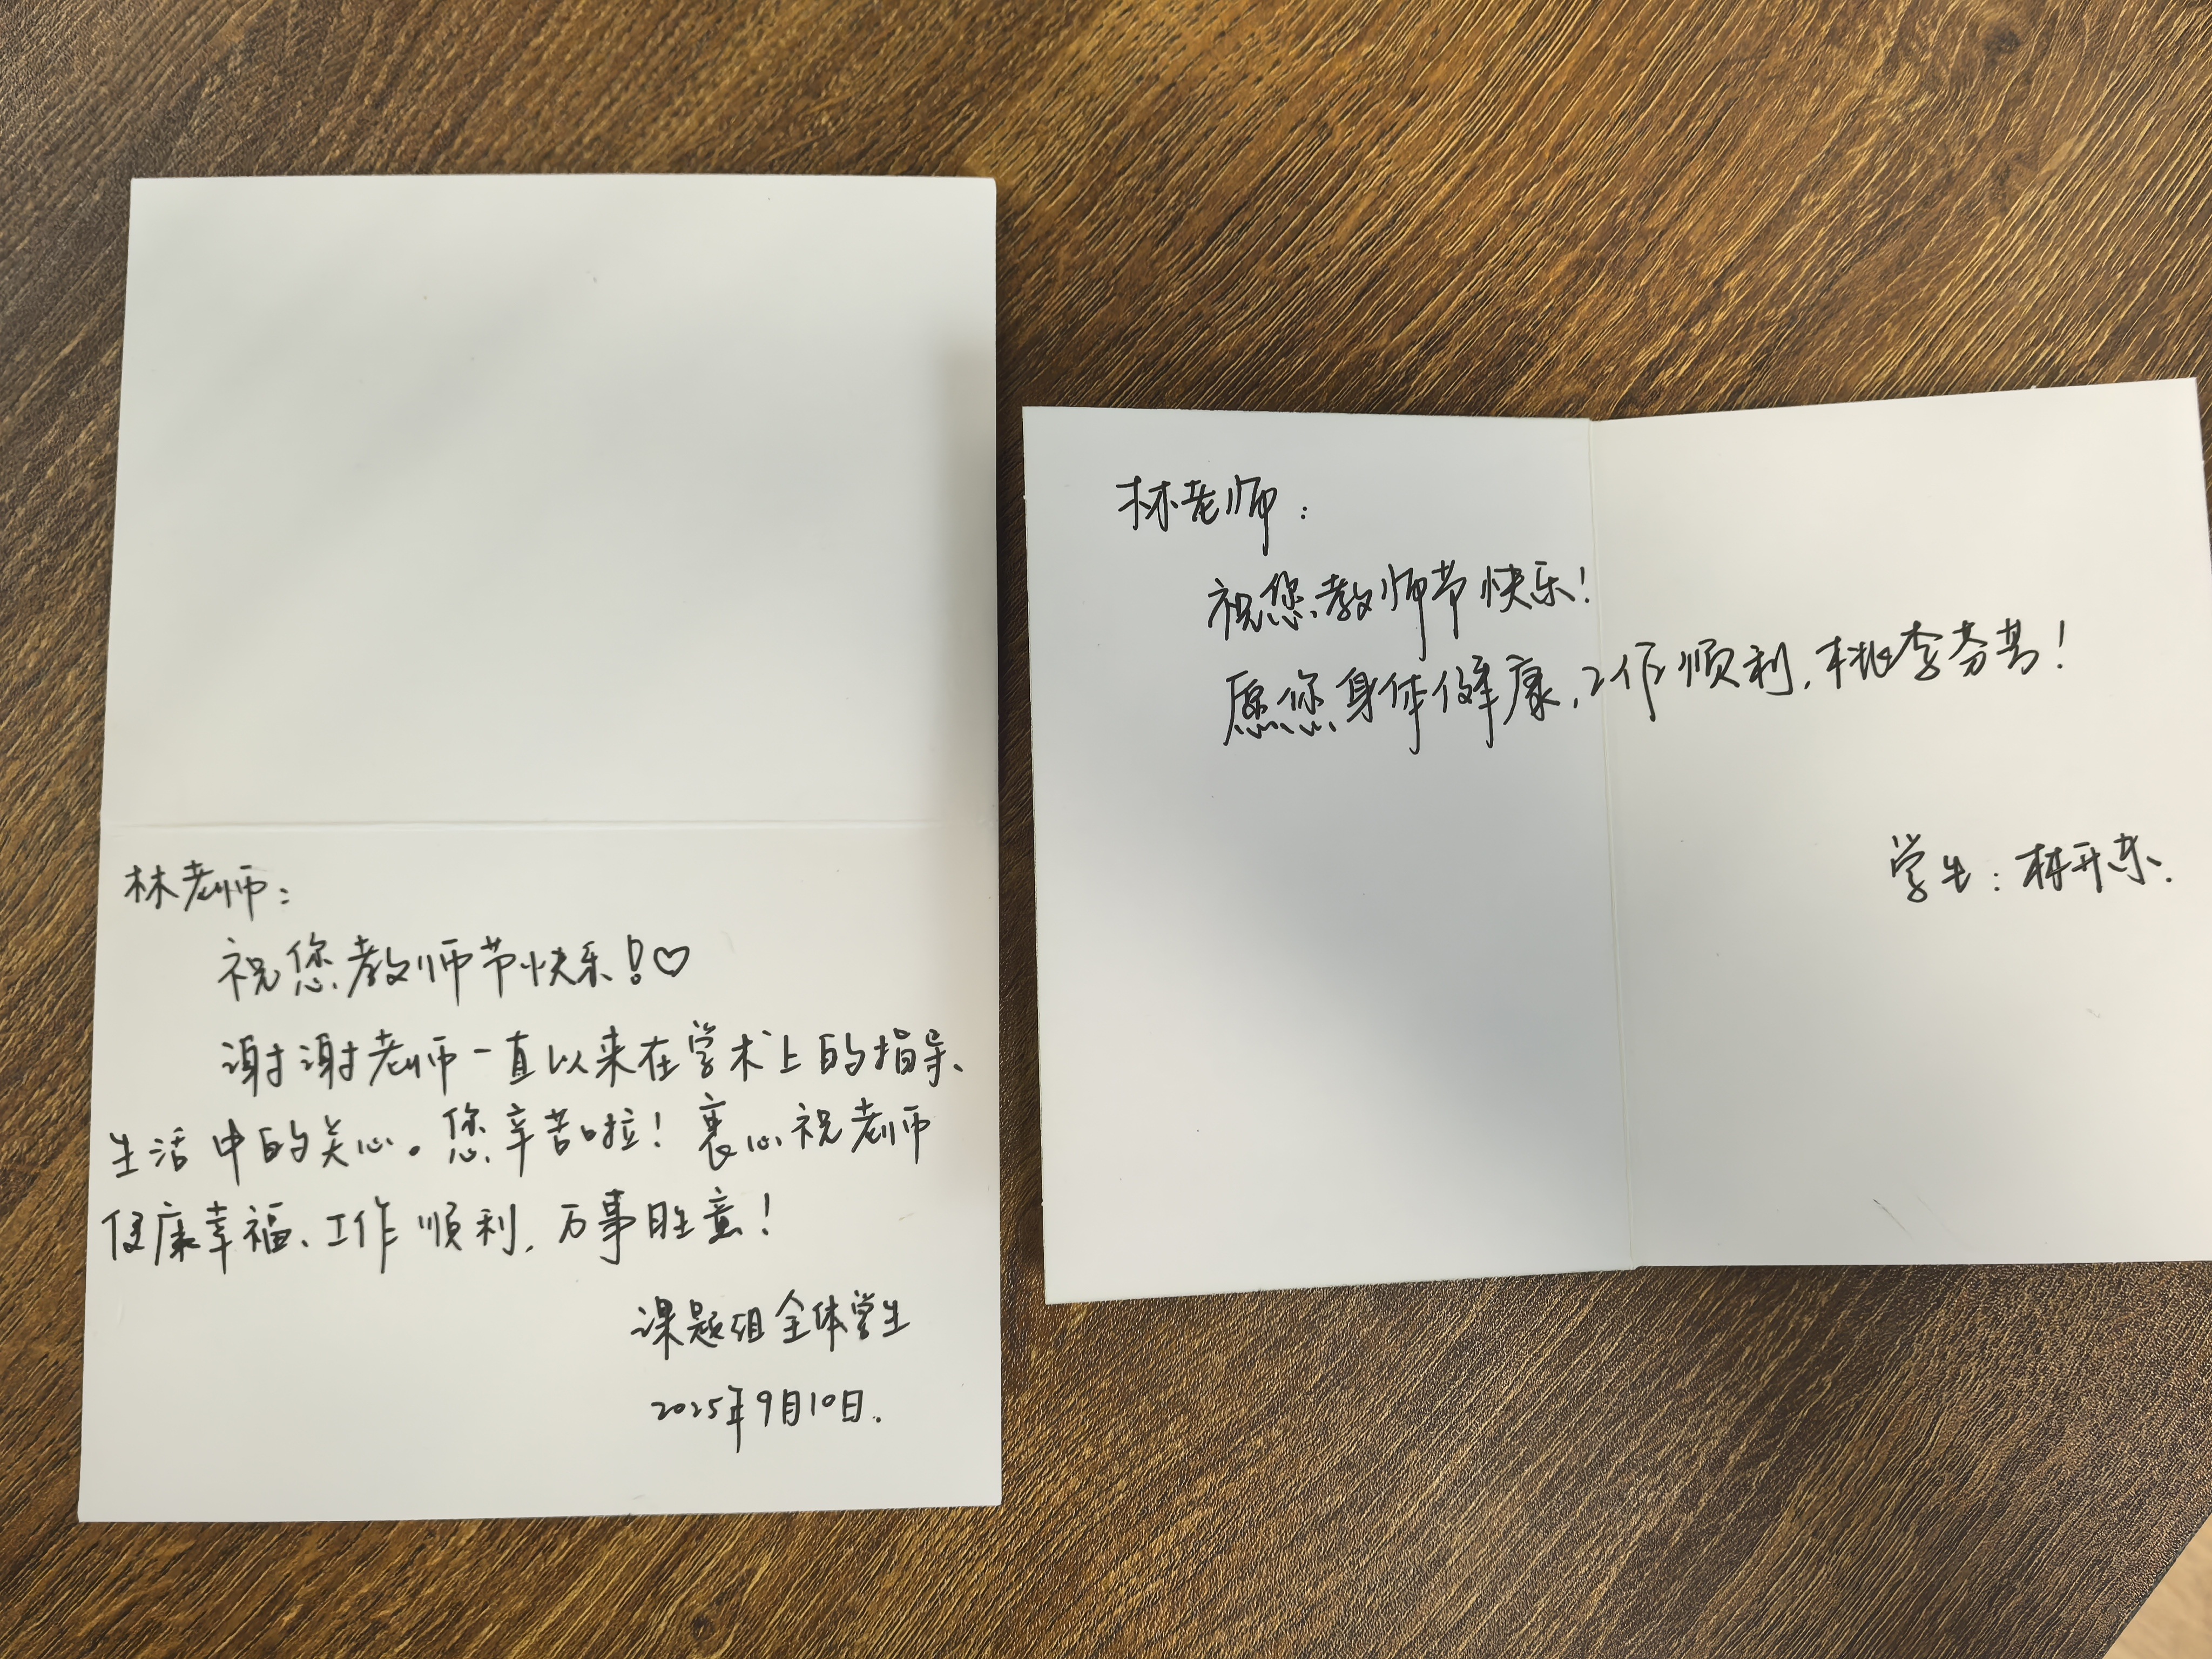 林老师：
祝您教师节快乐！♡
谢谢老师一直以来在学术上的指导、
生活中的关心。您辛苦啦！衷心祝老师
健康幸福、工作顺利，万事胜意！
课题组全体学生
2025年9月10日.
林老师：
祝您教师节快乐！
愿您身体健康，工作顺利，桃李芬芳！
学生：林开东.